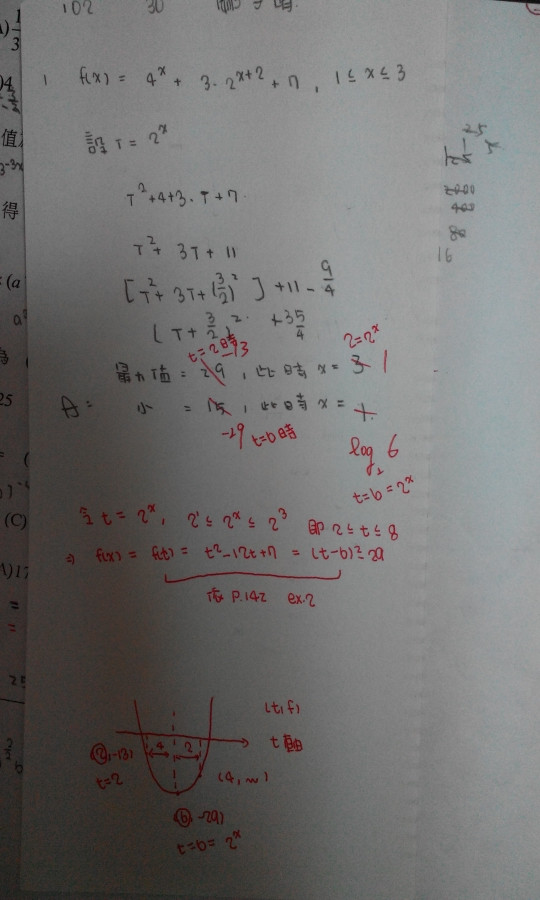 102 30
1 f(x) = 4^x + 3·2^{x+2} + 7, 1 ≤ x ≤ 3
設 T = 2^x
T^2 + 4 + 3·T + 7
T^2 + 3T + 11
[T^2 + 3T + (3/2)^2] + 11 - 9/4
(T + 3/2)^2 + 35/4
t=2時 -13 2=2^x
最大值 = 29, 此時 x = 3 1
A: 小 = 15, 此時 x = 1
-29 t=6時 log_2 6
t=6=2^x
令 t = 2^x, 2^1 ≤ 2^x ≤ 2^3 即 2 ≤ t ≤ 8
⇒ f(x) = f(t) = t^2 - 12t + 7 = (t-6)^2 - 29
P.142 ex.2
(t, f)
t 軸
4 2
(2, -13)
t=2
(4, ~)
(6, -29)
t=6=2^x
25
5
2000
400
80
16
值
得
(a
25
(C)
A)17
=
=
25